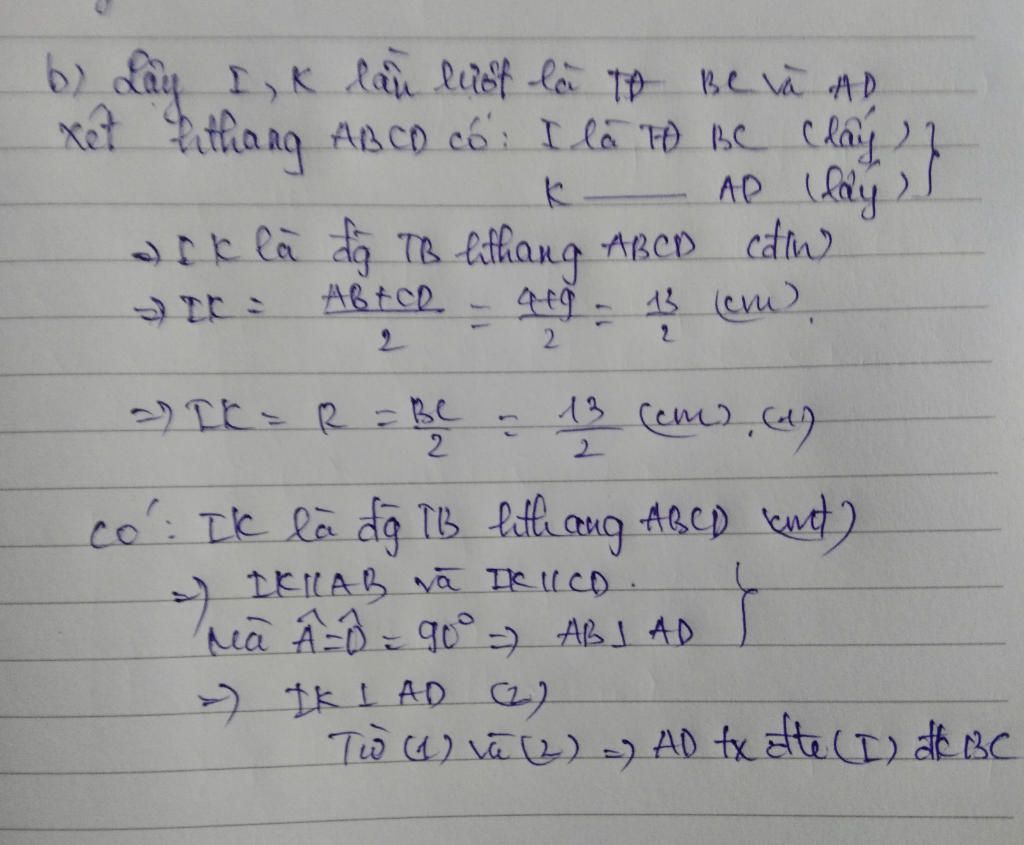 b) Lấy I, K lần lượt là TĐ BC và AD
xét hthang ABCD có: I là TĐ BC (lấy) }
K —— AD (lấy)
=> IK là đg TB hthang ABCD (đ/n)
=> IK = \frac{AB+CD}{2} = \frac{4+9}{2} = \frac{13}{2} (cm).
=> IK = R = \frac{BC}{2} = \frac{13}{2} (cm). (1)
có: IK là đg TB hthang ABCD (cmt)
=> IK // AB và IK // CD. }
Mà Â = D̂ = 90° => AB ⊥ AD
=> IK ⊥ AD (2)
Từ (1) và (2) => AD tx đtr (I) đk BC